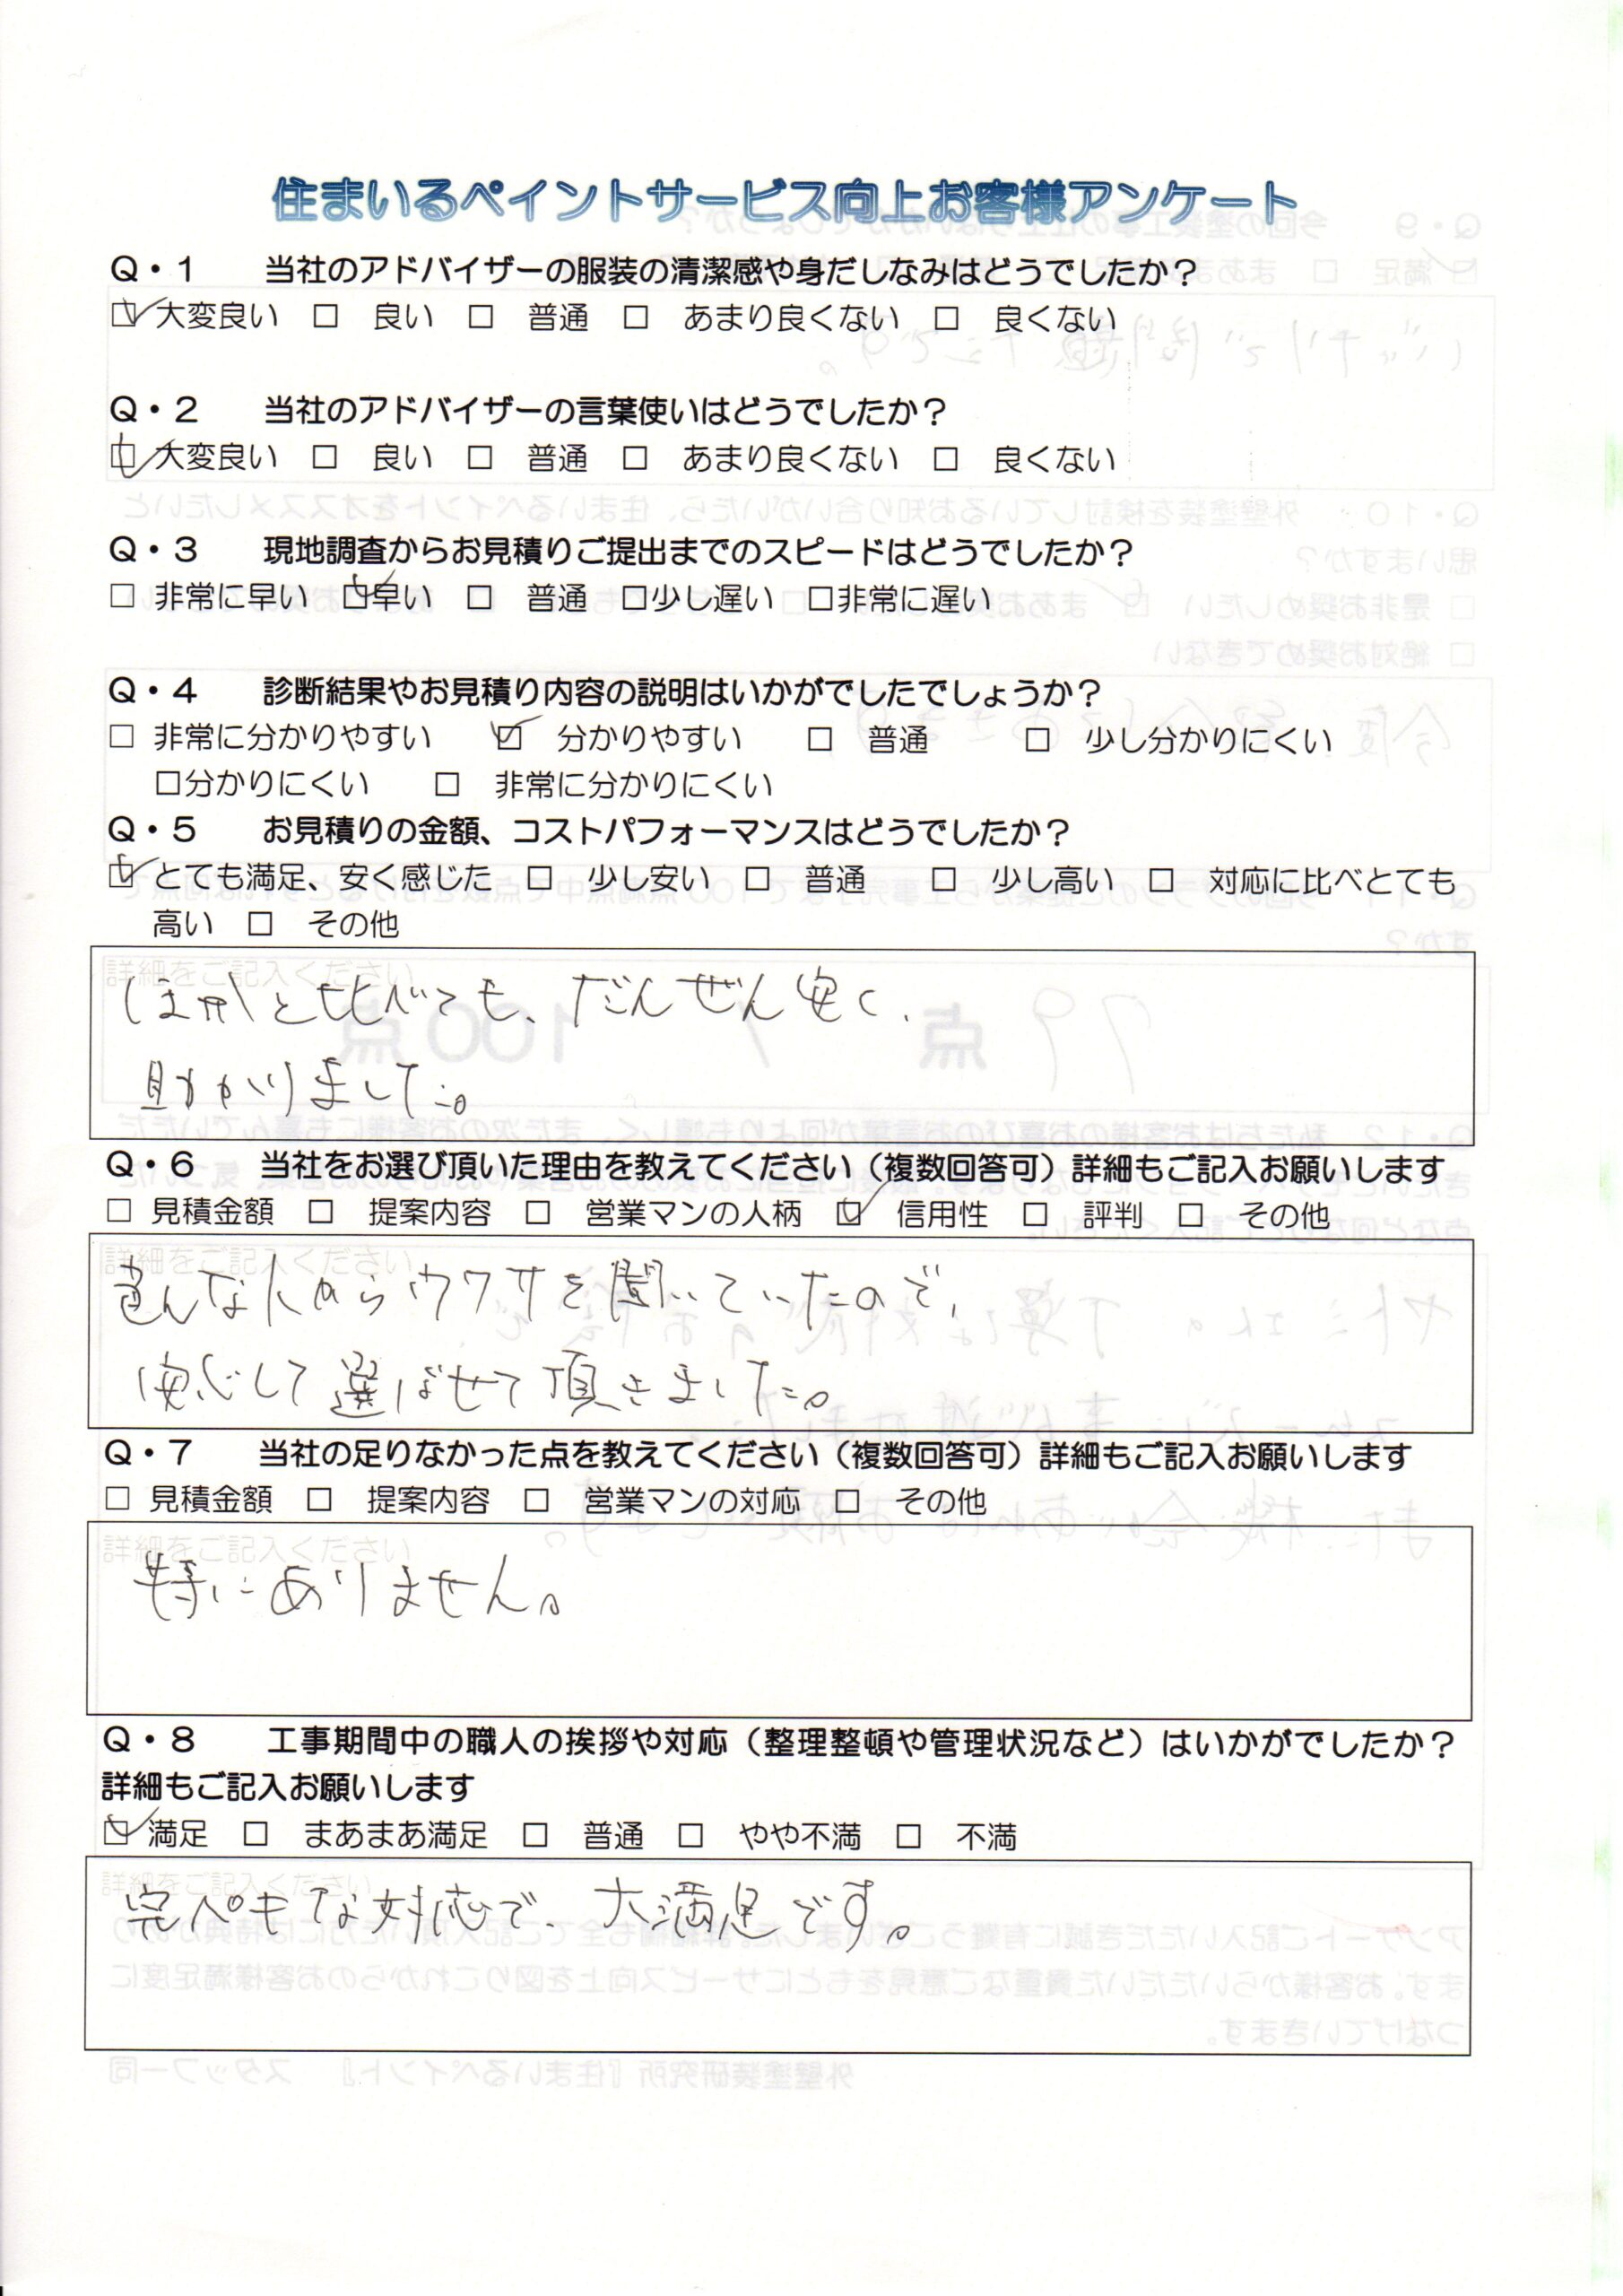 住まいるペイントサービス向上お客様アンケート
Q・1 当社のアドバイザーの服装の清潔感や身だしなみはどうでしたか?
☑ 大変良い □ 良い □ 普通 □ あまり良くない □ 良くない
Q・2 当社のアドバイザーの言葉使いはどうでしたか?
☑ 大変良い □ 良い □ 普通 □ あまり良くない □ 良くない
Q・3 現地調査からお見積りご提出までのスピードはどうでしたか?
□ 非常に早い ☑早い □ 普通 □少し遅い □非常に遅い
Q・4 診断結果やお見積り内容の説明はいかがでしたでしょうか?
□ 非常に分かりやすい ☑ 分かりやすい □ 普通 □ 少し分かりにくい
□分かりにくい □ 非常に分かりにくい
Q・5 お見積りの金額、コストパフォーマンスはどうでしたか?
☑ とても満足、安く感じた □ 少し安い □ 普通 □ 少し高い □ 対応に比べとても
高い □ その他
詳細をご記入ください
ほかと比べても、だんぜん安く、
助かりました。
Q・6 当社をお選び頂いた理由を教えてください(複数回答可)詳細もご記入お願いします
□ 見積金額 □ 提案内容 □ 営業マンの人柄 ☑ 信用性 □ 評判 □ その他
詳細をご記入ください
んな人からウワサを聞いていたので、
安心して選ばせて頂きました。
Q・7 当社の足りなかった点を教えてください(複数回答可)詳細もご記入お願いします
□ 見積金額 □ 提案内容 □ 営業マンの対応 □ その他
詳細をご記入ください
特にありません。
Q・8 工事期間中の職人の挨拶や対応(整理整頓や管理状況など)はいかがでしたか?
詳細もご記入お願いします
☑ 満足 □ まあまあ満足 □ 普通 □ やや不満 □ 不満
詳細をご記入ください
完ペキな対応で、大満足です。